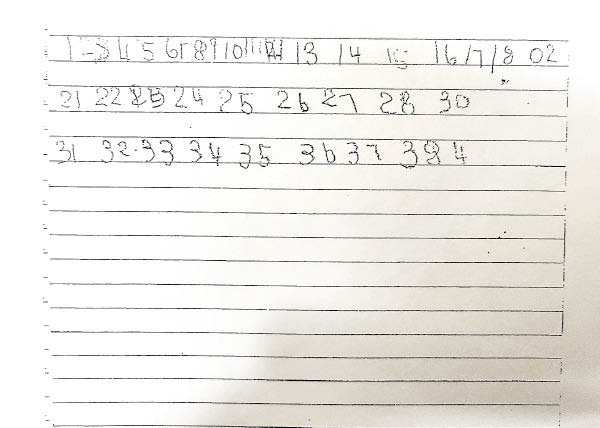 1 2 3 4 5 6 7 8 9 10 11 12 13 14 15 16 17 18 02
21 22 23 24 25 26 27 28 30
31 32 33 34 35 36 37 38 4